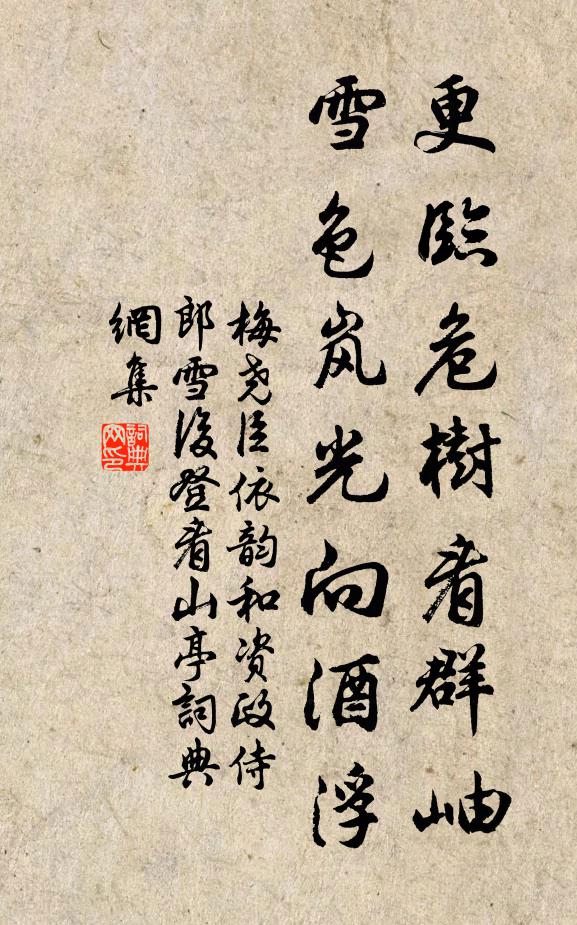 更臨危樹看群岫
雪色岚光向酒浮
梅尧臣依韵和资政侍
郎雪後登看山亭詞典
網集
詞典
网印